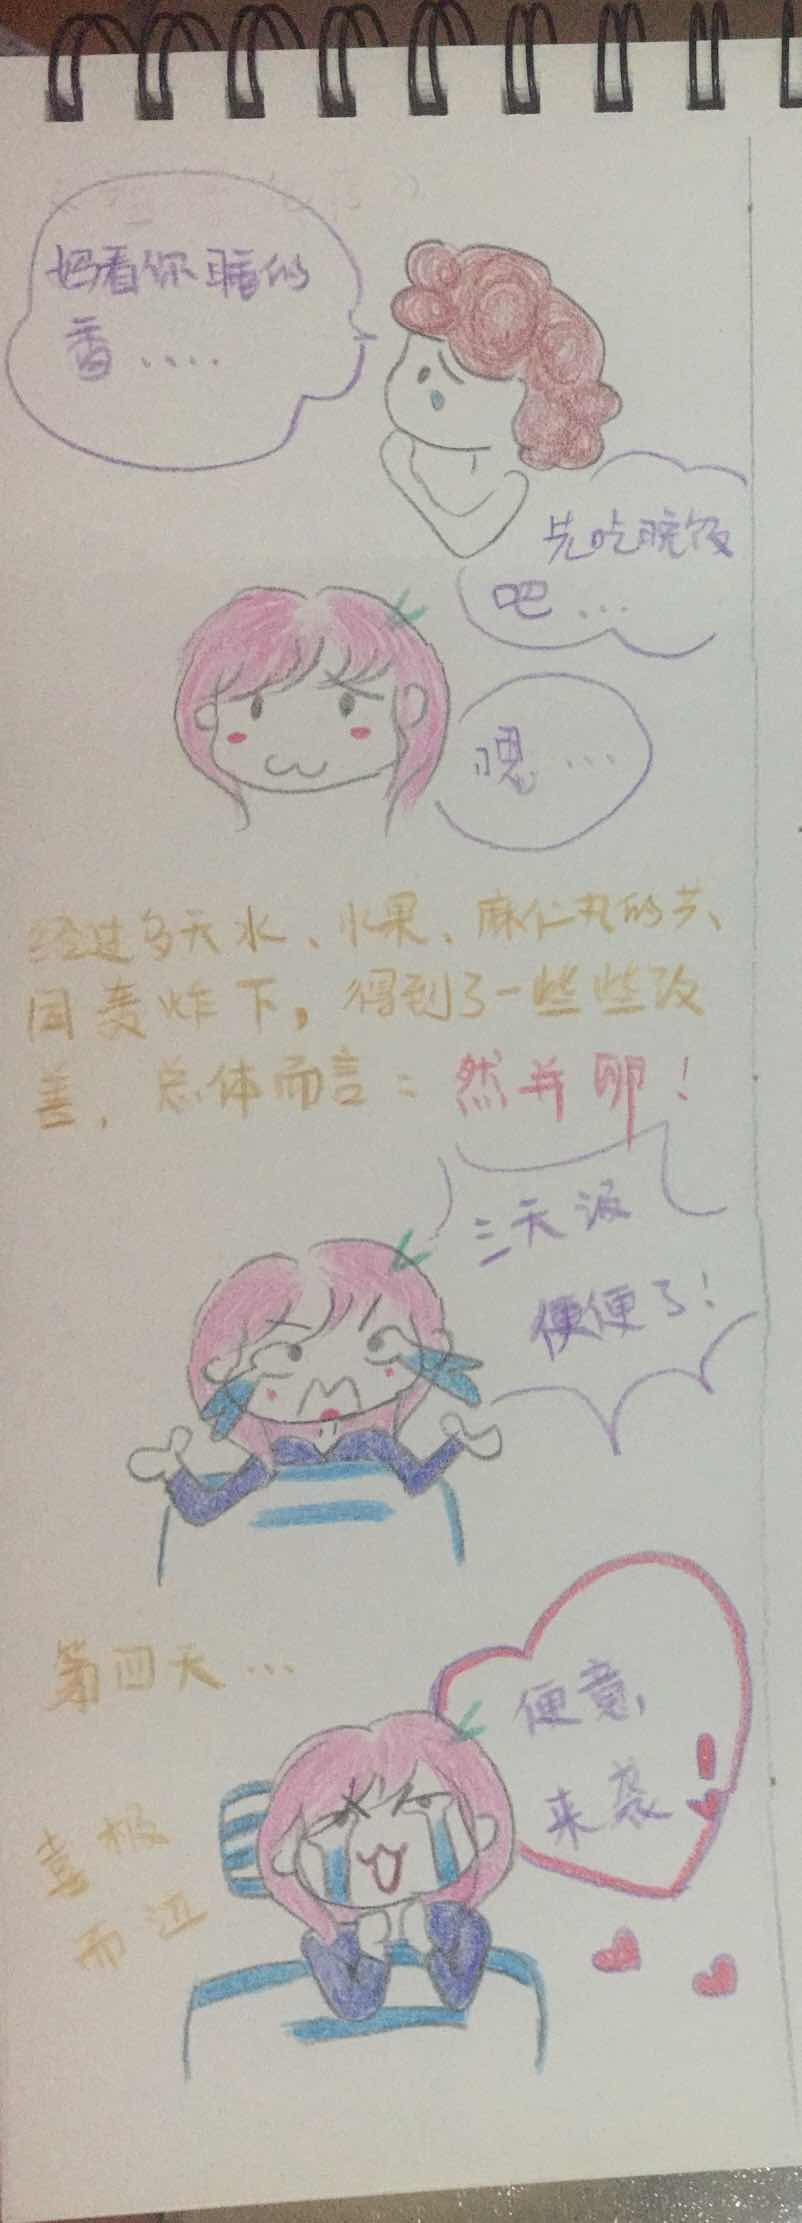 妈看你睡的
香....
先吃晚饭
吧...
嗯...
经过多天水、水果、麻仁丸的共
同轰炸下，得到了一些些改
善，总体而言：然并卵！
三天没
便便了！
第四天...
便意，
来袭！
喜极
而泣